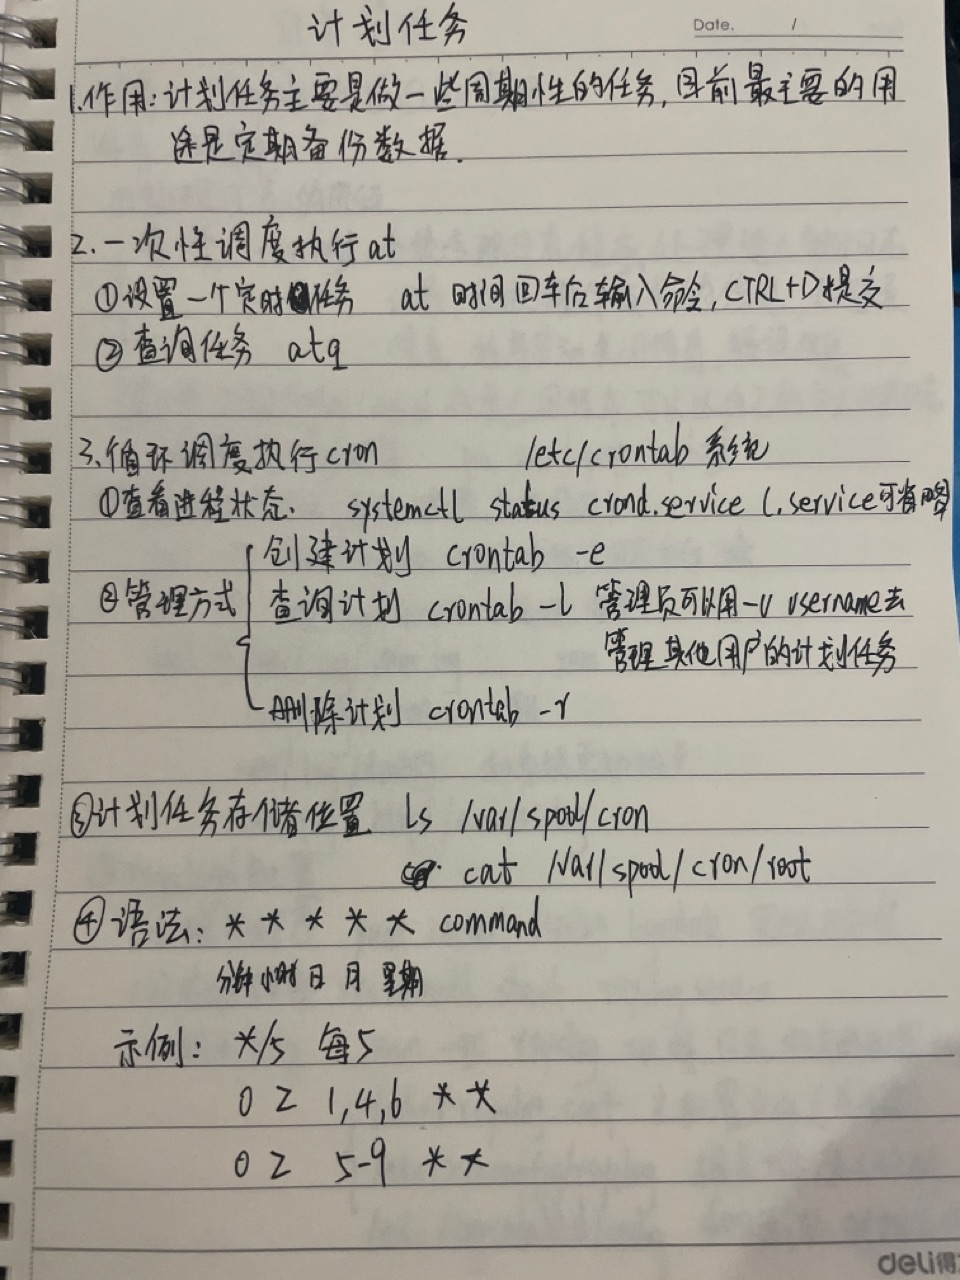 计划任务
Date. /
1.作用:计划任务主要是做一些周期性的任务,目前最主要的用
途是定期备份数据.
2.一次性调度执行at
①设置一个定时任务 at 时间 回车后输入命令,CTRL+D提交
②查询任务 atq
3.循环调度执行cron /etc/crontab 系统
①查看进程状态. systemctl status crond.service (.service可省略
创建计划 crontab -e
②管理方式 查询计划 crontab -l 管理员可以用-u username去
管理其他用户的计划任务
删除计划 crontab -r
③计划任务存储位置 ls /var/spool/cron
cat /var/spool/cron/root
④语法: * * * * * command
分钟 小时 日 月 星期
示例: */5 每5
0 2 1,4,6 * *
0 2 5-9 * *
deli得